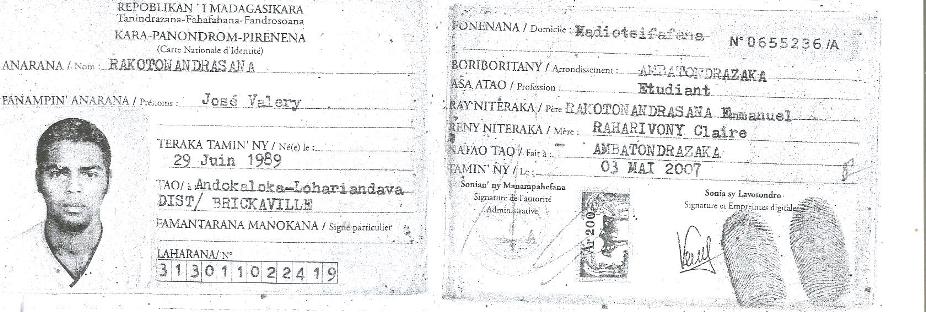 REPOBLIKAN'I MADAGASIKARA
Tanindrazana-Fahafahana-Fandrosoana
KARA-PANONDROM-PIRENENA
(Carte Nationale d'Identité)
ANARANA / Nom : RAKOTONANDRASANA
FANAMPIN' ANARANA / Prénoms : José Valery
TERAKA TAMIN' NY / Né(e) le :
29 Juin 1989
TAO / à Andokaloka-Lohariandava
DIST/ BRICKAVILLE
FAMANTARANA MANOKANA / Signe particulier
LAHARANA / N°
313011022419
FONENANA / Domicile : Madiotsifafana
N° 0655236 /A
BORIBORITANY / Arrondissement : AMBATONDRAZAKA
ASA ATAO / Profession : Etudiant
RAY NITERAKA / Père RAKOTONANDRASANA Emmanuel
RENY NITERAKA / Mère : RAHARIVONY Claire
NATAO TAO / Fait à : AMBATONDRAZAKA
TAMIN' NY / Le : 03 MAI 2007
Sonian' ny Manampahefana
Signature de l'autorité
Administrative
Ar 200
Sonia sy Lavosondro
Signature et Empreintes digitales